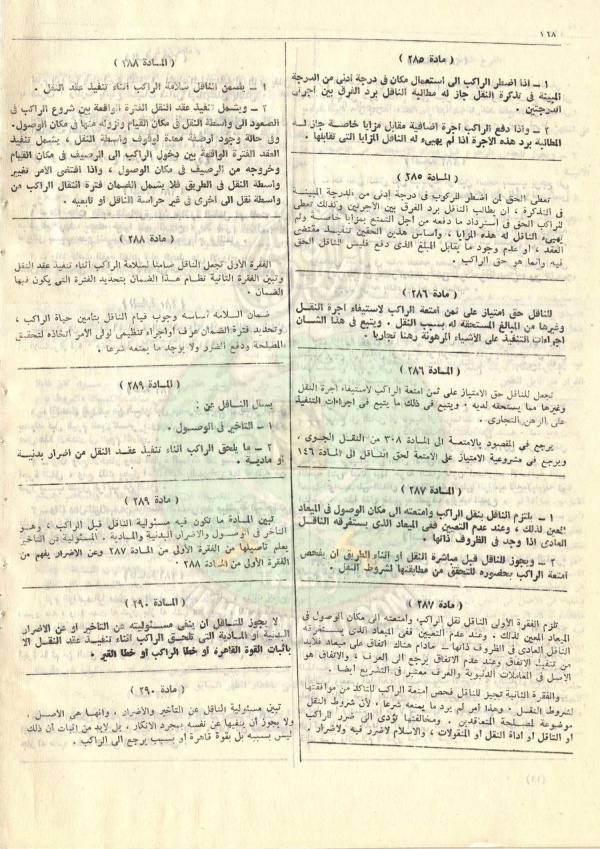 ١٦٨
( مادة ٢٨٥ )
١ ــ اذا اضطر الراكب الى استعمال مكان فى درجة أدنى من الدرجة
المبينة فى تذكرة النقل جاز له مطالبة الناقل برد الفرق بين أجرتى
الدرجتين .
٢ ــ واذا دفع الراكب أجرة اضافية مقابل مزايا خاصة جاز له
المطالبة برد هذه الأجرة اذا لم يهيىء له الناقل المزايا التى تقابلها .
( المادة ٢٨٥ )
تعطى الحق لمن اضطر للركوب فى درجة أدنى من الدرجة المبينة
فى التذكرة ، ان يطالب الناقل برد الفرق بين الأجرتين وكذلك تعطى
للراكب الحق فى استرداد ما دفعه من أجل التمتع بمزايا خاصة ولم
يهيىء الناقل له هذه المزايا ، وأساس هذين الحقين تنفيذ مقتضى
العقد ، أو عدم وجود ما يقابل المبلغ الذى دفع فليس للناقل الحق
فيه وانما هو حق الراكب .
( مادة ٢٨٦ )
للناقل حق امتياز على ثمن أمتعة الراكب لاستيفاء أجرة النقل
وغيرها من المبالغ المستحقة له بسبب النقل . ويتبع فى هذا الشأن
اجراءات التنفيذ على الأشياء المرهونة رهنا تجاريا .
( المادة ٢٨٦ )
تجعل للناقل حق الامتياز على ثمن امتعة الراكب لاستيفاء أجرة النقل
وغيرها مما يستحقه لديه . ويتبع فى ذلك ما يتبع فى اجراءات التنفيذ
على الرهن التجارى .
يرجع فى المقصود بالامتعة الى المادة ٣٠٨ من النقل الجوى ،
ويرجع فى مشروعية الامتياز على الامتعة لحق الناقل الى المادة ١٤٦
( المادة ٢٨٧ )
١ ــ يلتزم الناقل بنقل الراكب وامتعته الى مكان الوصول فى الميعاد
المعين لذلك ، وعند عدم التعيين ففى الميعاد الذى يستغرقه الناقل
العادى اذا وجد فى الظروف ذاتها .
٢ ــ ويجوز للناقل قبل مباشرة النقل أو أثناء الطريق أن يفحص
امتعة الراكب بحضوره للتحقق من مطابقتها لشروط النقل .
( مادة ٢٨٧ )
تلزم الفقرة الأولى الناقل نقل الراكب وأمتعته الى مكان الوصول فى
الميعاد المعين لذلك . وعند عدم التعيين ففى الميعاد الذى يستغرقه
الناقل العادى فى الظروف ذاتها ــ مادام هناك اتفاق على ميعاد فلابد
من تنفيذ الاتفاق وعند عدم الاتفاق يرجع الى العرف ، والاتفاق هو
الأصل فى المعاملات الدنيوية والعرف معتبر فى التشريع أيضا .
والفقرة الثانية تجيز للناقل فحص أمتعة الراكب للتأكد من موافقتها
لشروط النقل . وهذا أمر لم يرد ما يمنعه شرعا ، لأن شروط النقل
موضوعة لمصلحة المتعاقدين . ومخالفتها تؤدى الى ضرر للراكب
أو الناقل أو أداة النقل أو المنقولات ، والاسلام لاضرر فيه ولاضرار .
( المادة ٢٨٨ )
١ ــ يضمن الناقل سلامة الراكب أثناء تنفيذ عقد النقل .
٢ ــ ويشمل تنفيذ عقد النقل الفترة الواقعة بين شروع الراكب فى
الصعود الى واسطة النقل فى مكان القيام ونزوله منها فى مكان الوصول.
وفى حالة وجود أرصفة معدة لوقوف واسطة النقل ، يشمل تنفيذ
العقد الفترة الواقعة بين دخول الراكب الى الرصيف فى مكان القيام
وخروجه من الرصيف فى مكان الوصول ، واذا اقتضى الأمر تغيير
واسطة النقل فى الطريق فلا يشمل الضمان فترة انتقال الراكب من
واسطة نقل الى أخرى فى غير حراسة الناقل أو تابعيه .
( مادة ٢٨٨ )
الفقرة الأولى تجعل الناقل ضامنا لسلامة الراكب أثناء تنفيذ عقد النقل
وتبين الفقرة الثانية نظام هذا الضمان بتحديد الفترة التى يكون فيها
الضمان .
ضمان السلامة أساسه وجوب قيام الناقل بتأمين حياة الراكب ،
وتحديد فترة الضمان عرف أواجراء تنظيمى لولى الأمر اتخاذه لتحقيق
المصلحة ودفع الضرر ولا يوجد ما يمنعه شرعا .
( المادة ٢٨٩ )
يسأل الناقل عن :
١ ــ التأخير فى الوصول .
٢ ــ ما يلحق الراكب أثناء تنفيذ عقد النقل من أضرار بدنية
أو مادية .
( مادة ٢٨٩ )
تبين المادة ما تكون فيه مسئولية الناقل قبل الراكب ، وهو
التأخر فى الوصول والأضرار البدنية والمادية . المسئولية عن التأخير
يعلم تأصيلها من الفقرة الأولى من المادة ٢٨٧ وعن الأضرار يفهم من
الفقرة الأولى من المادة ٢٨٨ .
( المادة ٢٩٠ )
لا يجوز للناقل أن ينفى مسئوليته عن التأخير أو عن الأضرار
البدنية أو المادية التى تلحق الراكب أثناء تنفيذ عقد النقل الا
باثبات القوة القاهرة أو خطأ الراكب أو خطأ الغير .
( مادة ٢٩٠ )
تبين مسئولية الناقل عن التأخير والأضرار ، وانها هى الأصل .
ولا يجوز أن ينفيها عن نفسه بمجرد الانكار . بل لابد من اثبات أن ذلك
ليس بسببه بل بقوة قاهرة أو بسبب يرجع الى الراكب .